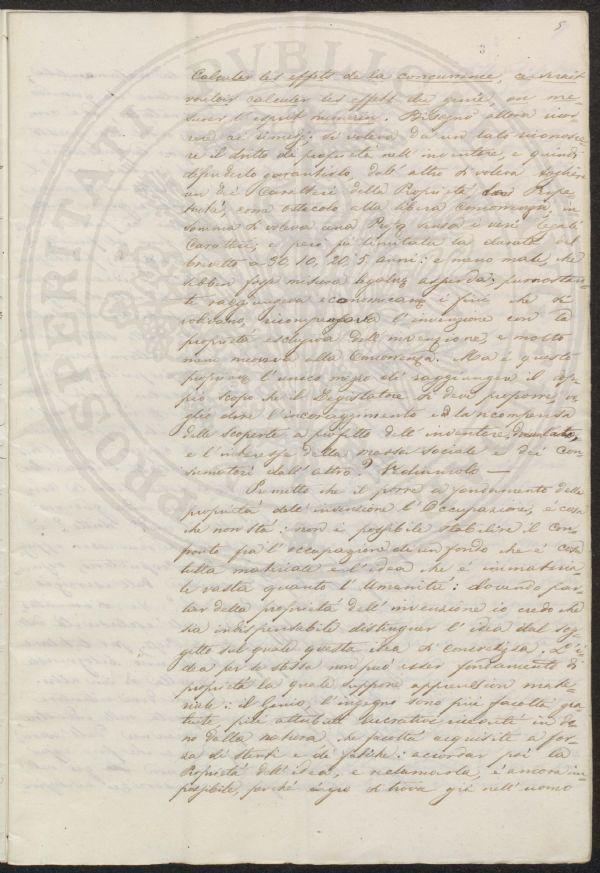 5
3
Calculer les effets de la concurrence, ce serait
vouloir calculer les effets du genie, ou me-
surer l'esprit humain. Bisognò allora ricor
rere ai rimedj: si voleva da un lato riconosce
re il dritto di proprietà nell'inventore, e quindi
difenderlo garantirlo, dall'altro si voleva togliere
un dei Caratteri della Proprietà la Perpe
tuità, come ostacolo alla libera Concorrenza, in
somma si voleva una Proprietà senza i veri legali
Caratteri, e però fu limitata la durata del
brevetto a 10, 20, 5 anni: e meno male, che
sebben fosse misura legalmente assurda, pur
raggiungeva economicamente i fini che si
volevano, ricompensare l'invenzione con la
proprietà esclusiva dell'invenzione, e molto
men nuocere alla Concorrenza. Ma è questo
propriamente l'unico mezzo di raggiungere il dop
pio scopo che il Legislatore si deve proporre, vo
glio dire l'incoraggimento ed la ricompensa
delle scoperte a profitto dell'inventore, da un lato,
e l'interesse della massa sociale e dei con
sumatori dall'altro? Vediamolo —
Premetto che il porre a fondamento della
proprietà dell'invenzione l'Occupazione, è cosa
che non stà: non è possibile stabilire il con
fronto fra l'occupazione di un fondo che è cosa
tutta materiale e l'idea che è immateria
le vasta quanto l'Umanità: dovendo par
lar della proprietà dell'invenzione io credo che
sia indispensabile distinguer l'idea dal sog
getto sul quale questa idea si concretizza. L'i
dea per se stessa non può esser fondamento di
proprietà la quale suppone apprension mate-
riale: il Genio, l'ingegno sono più facoltà gra
tuite, più attributi lucrativi ricevuti in do
no dalla natura, che facoltà acquisite a for
za di stenti e di fatiche: accordar poi la
Proprietà dell'idea, e reclamarla, è ancora im
possibile, perchè si trova già nell'uomo